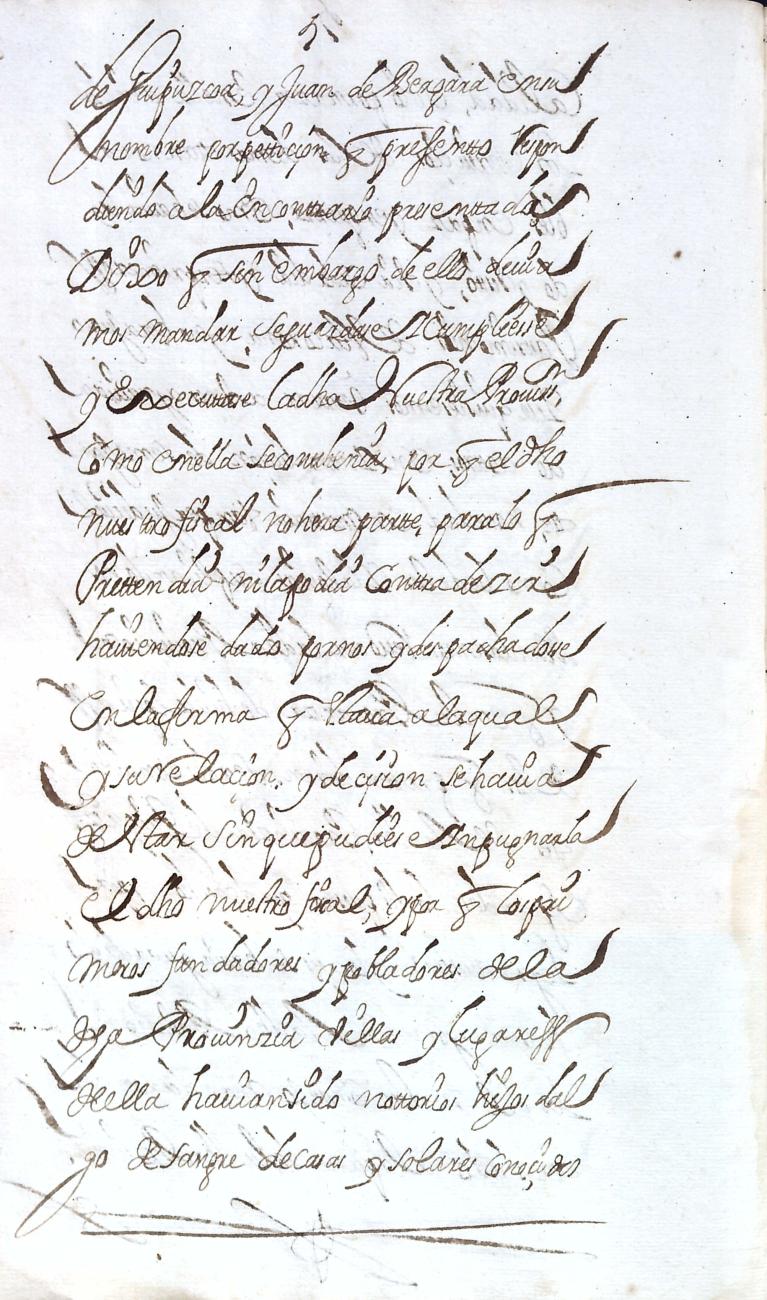 de Guipuzcoa, y Juan de Bergara en su
nombre por petticion q̃ presentto Respon
diendo a la En contrario presenttada
Dixo q̃ sin embargo de ello deuia
mos mandar se guardase Cumpliesse
y Executase la dha Nuestra Prouon,
Como en ella se contthenia, por q̃ el dho
nuestro fiscal no hera parte, para lo q̃
Prettendia ni la podia Contradezir
hauiendose dado por nos y despachadose
En la forma q̃ staua a la qual
y su Relaçion, y deçision se hauia
de star sin que pudiese Inpugnarla
El dho nuestro fiscal, y por q̃ los pri
meros fundadores y pobladores de la
dha Prouinzia Villas y lugares
de ella hauian sido nottorios hijos dal
go de sangre de casas y solares Conoçidos